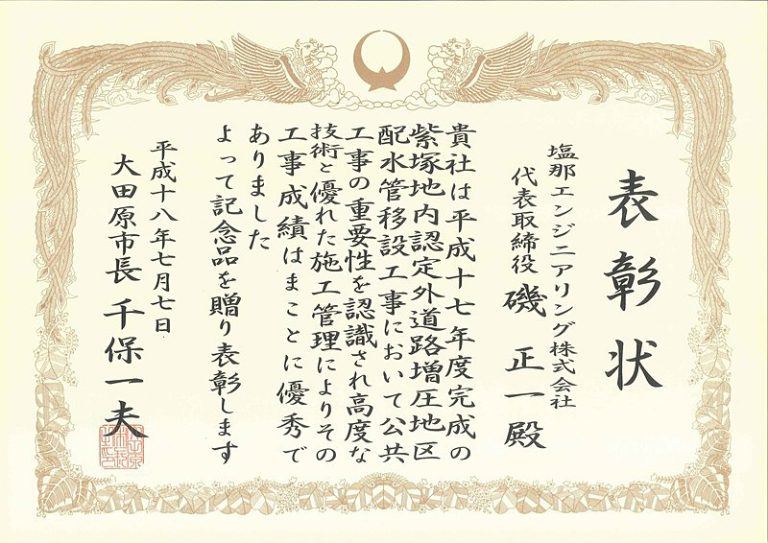 表彰状
塩那エンジニアリング株式会社
代表取締役 磯 正一殿
貴社は平成十七年度完成の
紫塚地内認定外道路増圧地区
配水管移設工事において公共
工事の重要性を認識され高度な
技術と優れた施工管理によりその
工事成績はまことに優秀で
ありました
よって記念品を贈り表彰します
平成十八年七月七日
大田原市長 千保一夫